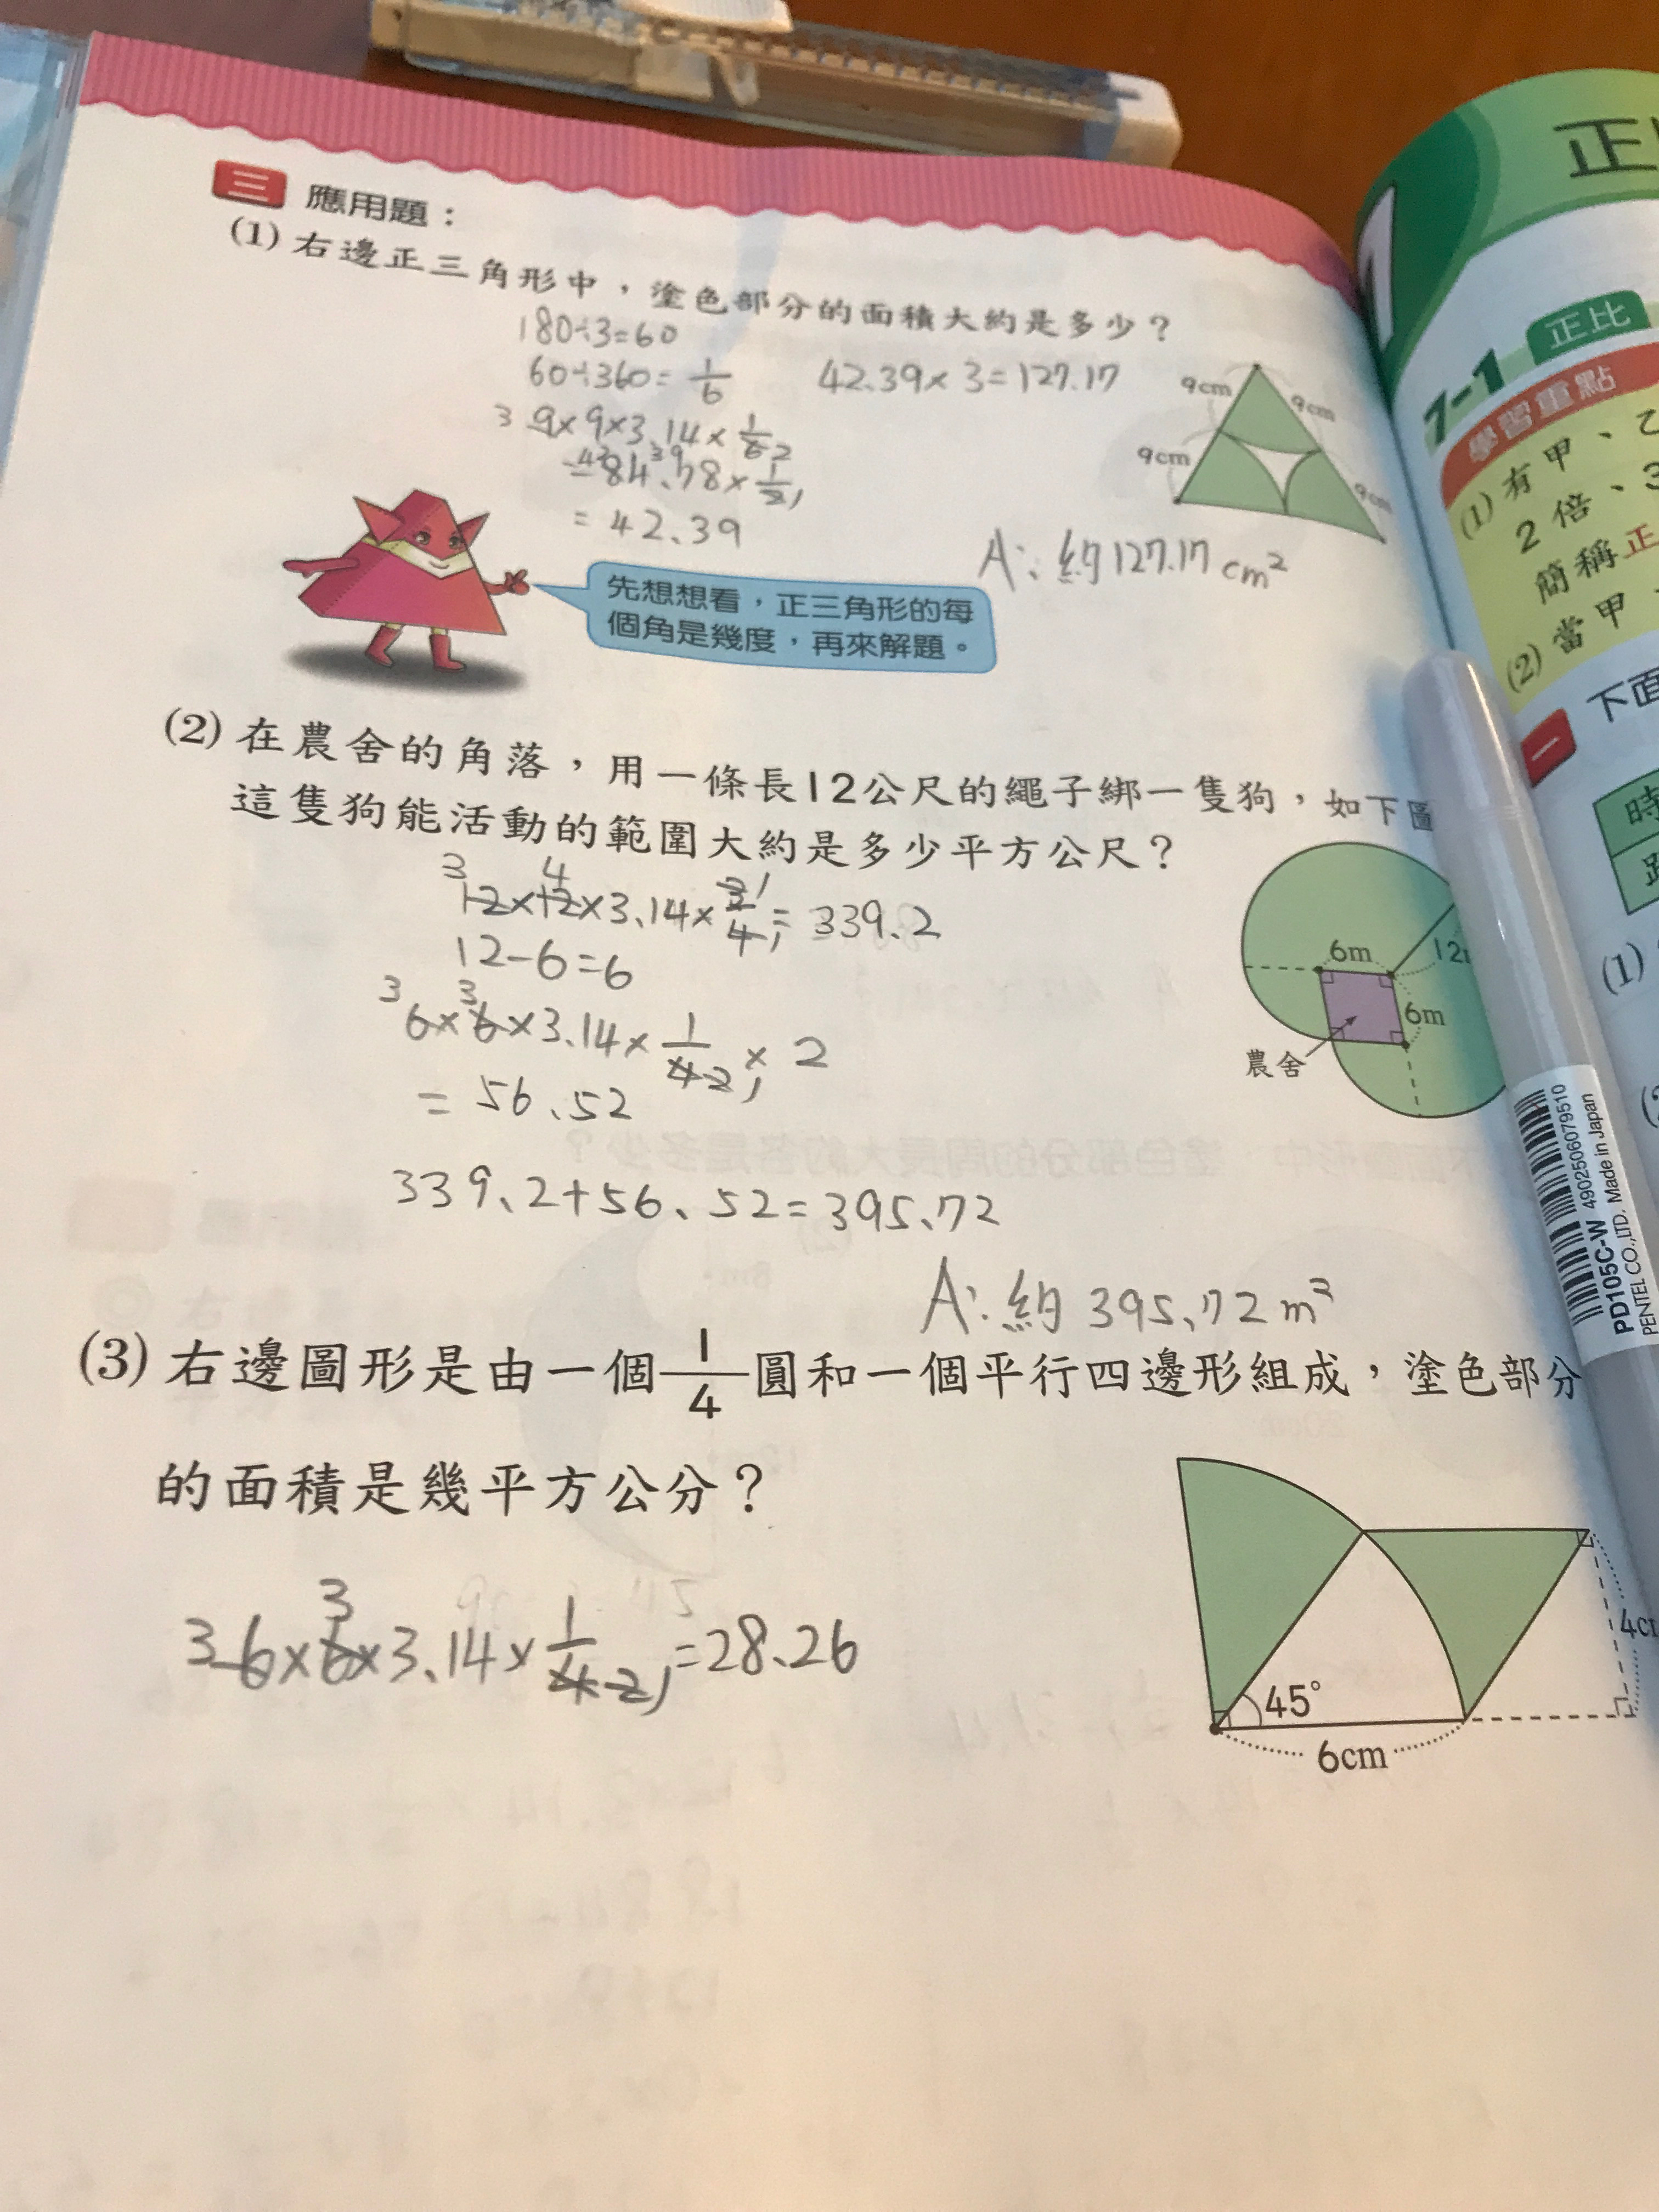 三 應用題：
(1) 右邊正三角形中，塗色部分的面積大約是多少？
180÷3=60
60÷360=1/6
42.39×3=127.17
3 9×9×3.14×1/6 2
42 39
=84.78×1/2 1
=42.39
9cm
9cm
9cm
9cm
A：約127.17cm²
先想想看，正三角形的每
個角是幾度，再來解題。
(2) 在農舍的角落，用一條長12公尺的繩子綁一隻狗，如下圖
這隻狗能活動的範圍大約是多少平方公尺？
3 4
12×12×3.14×3/4 1 1=339.2
12-6=6
3 3
6×6×3.14×1/4 2 1×2
=56.52
339.2+56.52=395.72
A：約395.72m²
6m
12
6m
農舍
(3) 右邊圖形是由一個1/4圓和一個平行四邊形組成，塗色部分
的面積是幾平方公分？
3
3 6×6×3.14×1/4 2 1=28.26
45°
6cm
4c
正
1
7-1 正比
學習重點
(1) 有甲、乙
2倍、3
簡稱正
(2) 當甲、
一 下面
時
(1)
4902506079510
PD105C-W Made in Japan
PENTEL CO.,LTD.